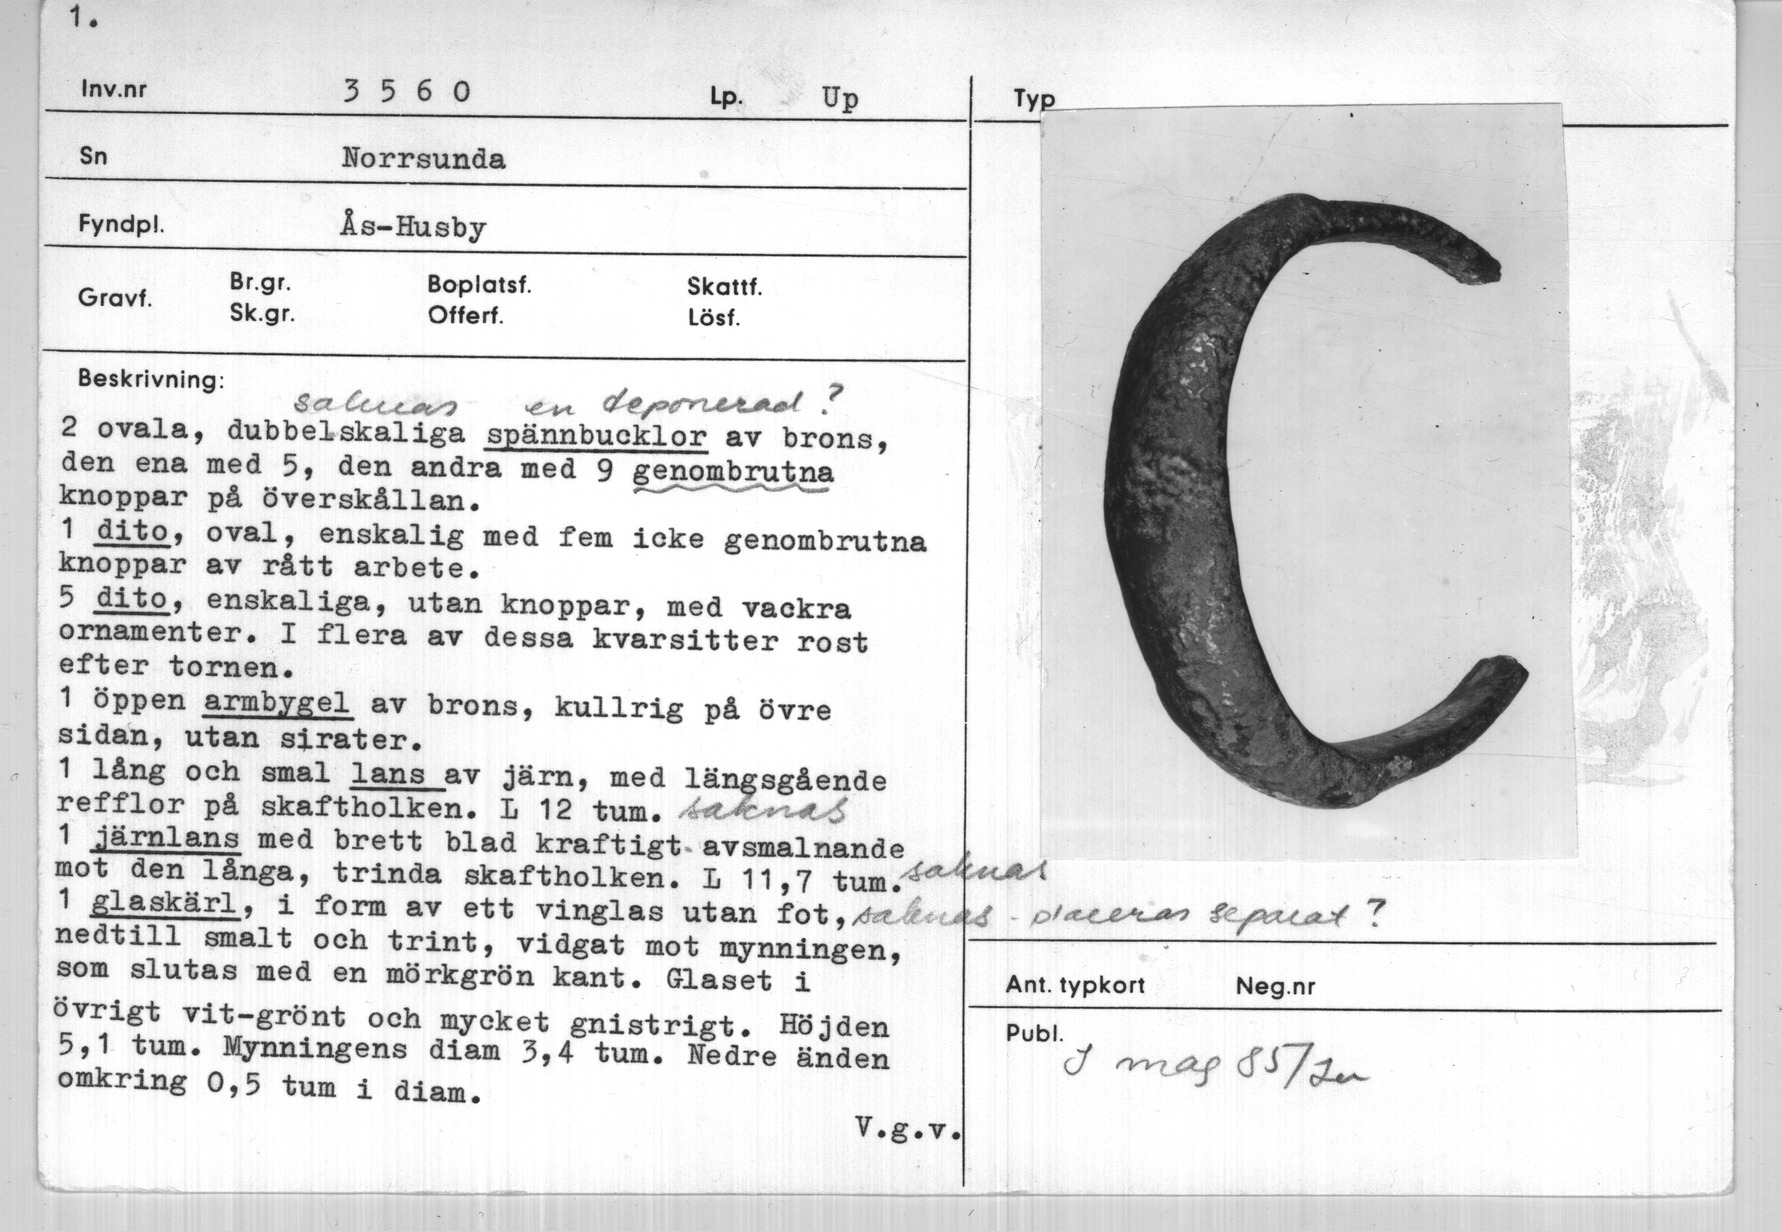 1.
Inv.nr 3 5 6 0 Lp. Up
Sn Norrsunda
Fyndpl. Ås-Husby
Gravf. Br.gr. Boplatsf. Skattf.
Sk.gr. Offerf. Lösf.
Beskrivning:
saknas en deponerad?
2 ovala, dubbelskaliga spännbucklor av brons,
den ena med 5, den andra med 9 genombrutna
knoppar på överskållan.
1 dito, oval, enskalig med fem icke genombrutna
knoppar av rått arbete.
5 dito, enskaliga, utan knoppar, med vackra
ornamenter. I flera av dessa kvarsitter rost
efter tornen.
1 öppen armbygel av brons, kullrig på övre
sidan, utan sirater.
1 lång och smal lans av järn, med längsgående
refflor på skaftholken. L 12 tum. saknas
1 järnlans med brett blad kraftigt avsmalnande
mot den långa, trinda skaftholken. L 11,7 tum. saknas
1 glaskärl, i form av ett vinglas utan fot, saknas - placeras separat?
nedtill smalt och trint, vidgat mot mynningen,
som slutas med en mörkgrön kant. Glaset i
övrigt vit-grönt och mycket gnistrigt. Höjden
5,1 tum. Mynningens diam 3,4 tum. Nedre änden
omkring 0,5 tum i diam.
V.g.v.
Typ
Ant. typkort Neg.nr
Publ.
I mag 85/